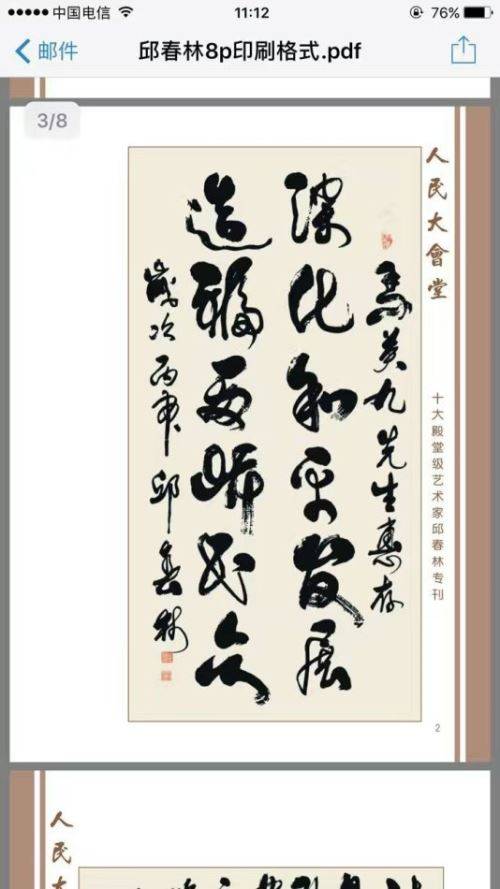 中国电信
11:12
76%
邮件
邱春林8p印刷格式.pdf
3/8
人民大會堂
十大殿堂级艺术家邱春林专刊
馬英九先生惠存
深化和平發展
造福两岸民众
歲次丙申邱春林
2
人民大